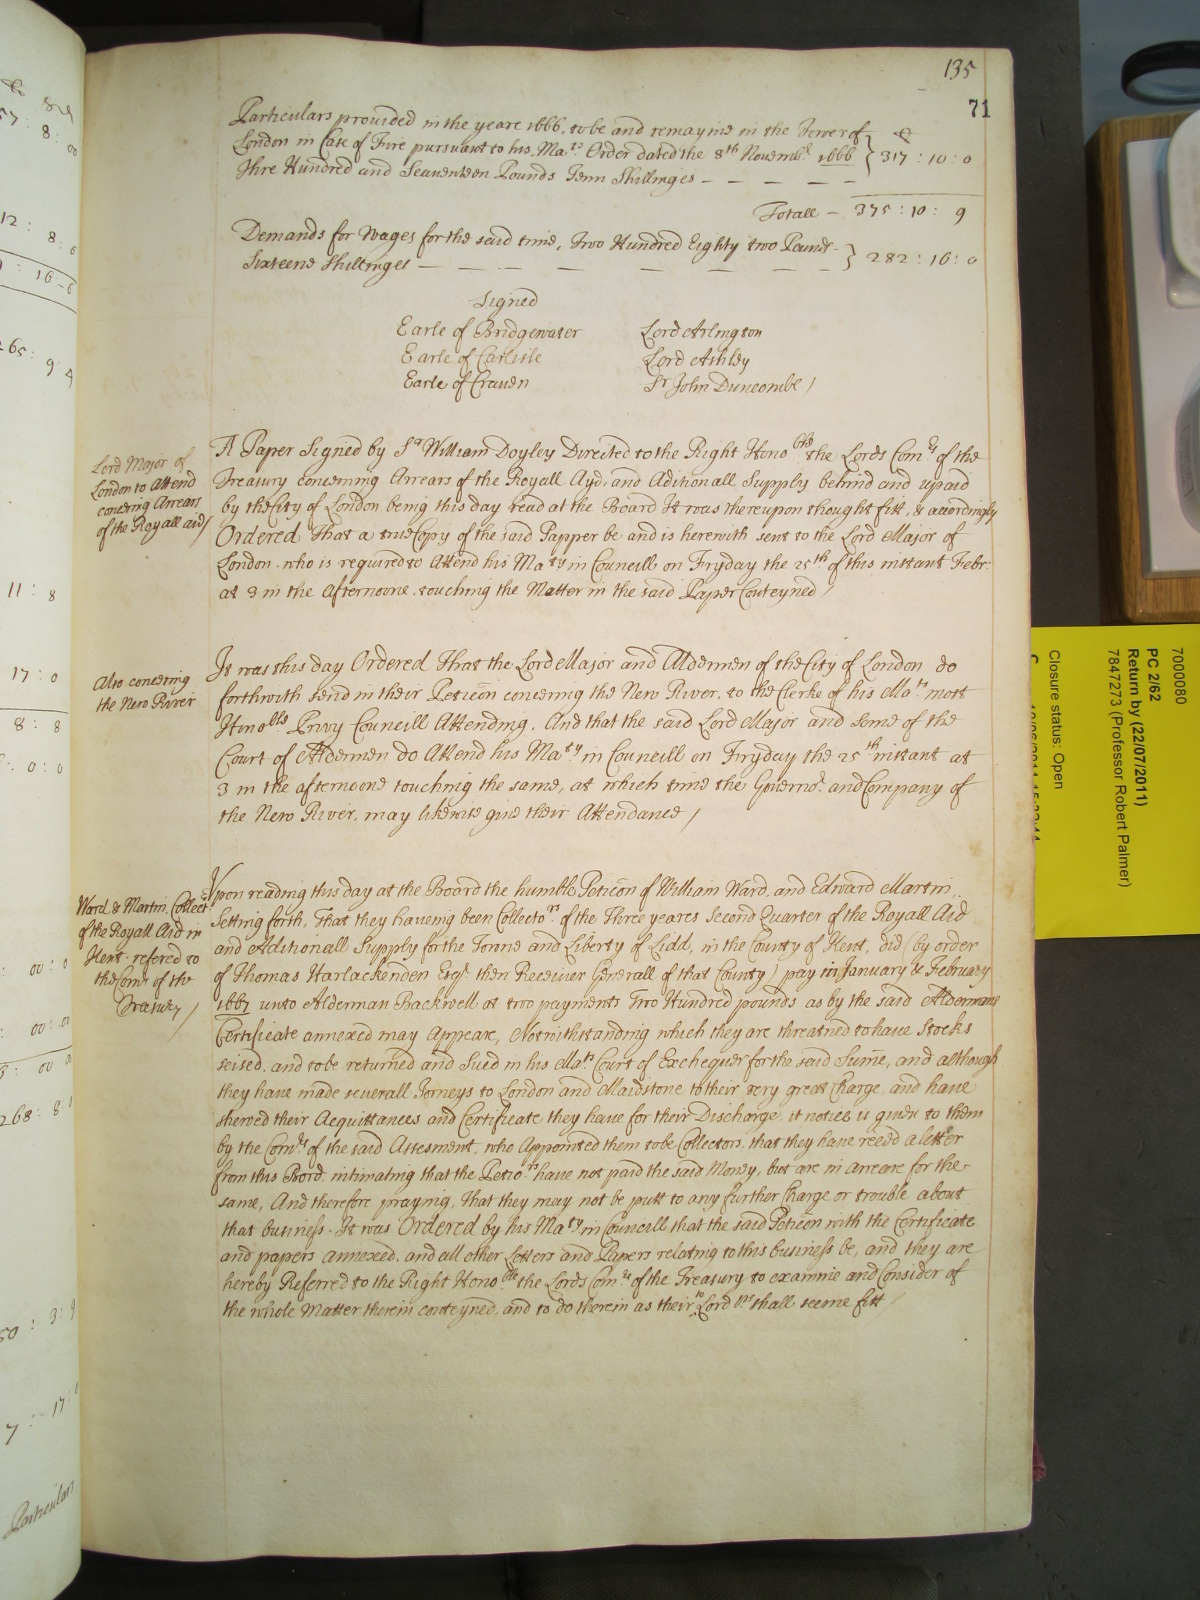 135
71
Particulars provided in the yeare 1666, to be and remayne in the Tower of
London in Case of Fire pursuant to his Ma.ts Order dated the 8th Novemb.r 1666 } 317 : 10 : 0
Thre Hundred and Seaventeen Pounds Tenn Shillinges – – – – –
Totall – 375 : 10 : 9
Demands for Wages for the said time, Two Hundred Eighty two Pounds
Sixteene shillinges – – – – – – – } 282 : 16 : 0
Signed
Earle of Bridgewater Lord Arlington
Earle of Carlisle Lord Ashley
Earle of Craven Sr John Duncombe /
Lord Major of
London to Attend
concering Arrears
of the Royall aid /
A Paper Signed by Sr William Doyley Directed to the Right Hono.ble the Lords Com.rs of the
Treasury concerning Arrears of the Royall Ayd, and Aditionall Supply behind and upaid
by the City of London being this day read at the Board It was thereupon thought fitt, & accordingly
Ordered That a true Copy of the said Papper be and is herewith sent to the Lord Major of
London. who is required to Attend his Ma.ty in Councill on Fryday the 25th of this instant Febr:
at 3 in the Afternoone. touching the Matter in the said Paper Conteyned /
Also concering
the New River
It was this day Ordered That the Lord Major and Aldermen of the City of London do
forthwith send in their Peticon concering the New River, to the Clerke of his Ma.ts most
Hono.ble Privy Councill Attending. And that the said Lord Major and some of the
Court of Aldermen do Attend his Ma.ty in Councill on Fryday the 25th instant at
3 in the afternoone touching the same, at which time the Governo.r and Company of
the New River, may likewise give their Attendance /
Ward & Martin, Collect.rs
of the Royall Aid in
Kent. refered to
the Com.rs of the
Treasury /
Upon reading this day at the Board the humble Peticon of William Ward, and Edward Martin.
Setting forth, That they haveing been Collecto.rs of the Three yeares Second Quarter of the Royall Aid
and Aditionall Supply for the Towne and Liberty of Lidd, in the County of Kent, did (by order
of Thomas Harlackenden Esq.r then Receiver Generall of that County) pay in January & February
1667 unto Alderman Backwell at two payments Two Hundred pounds as by the said Aldermans
Certificate annexed may Appeare, Notwithstanding which they are threatned to have Stocks
seised. and to be returned and Sued in his Ma.ts Court of Exchequer for the said Sume, and although
they have made severall Jorneys to London and Maidstone to their very great Charge. and have
shewed their Acquittances and Certificate they have for their Discharge. it notice is given to them
by the Com.rs of the said Assesment, who Appointed them to be Collectors, that they have reced a letter
from this Bord. intimating that the Petio.rs have not paid the said Money, but are in arreare for the
same, And therefore praying, That they may not be putt to any further Charge or trouble about
that business. It was Ordered by his Ma.ty in Councill that the said Peticon with the Certificate
and papers annexed. and all other Letters and Papers relating to this business be, and they are
hereby Referred to the Right Hono.ble the Lords Com.rs of the Treasury to examine and Consider of
the whole Matter therein conteyned. and to do therein as their to Lord.pps shall seeme fitt /
57 : 8 : 00
12 : 8 : 6
16 – 6
265 : 9 : 4
11 : 8
17 : 0
8 : 8
0 : 0
00 : 0
00 : 00
268 : 8
50 : 3 : 9
7 : 17
Particulars
7000080
PC 2/62
Return by (22/07/2011)
7847273 (Professor Robert Palmer)
Closure status: Open